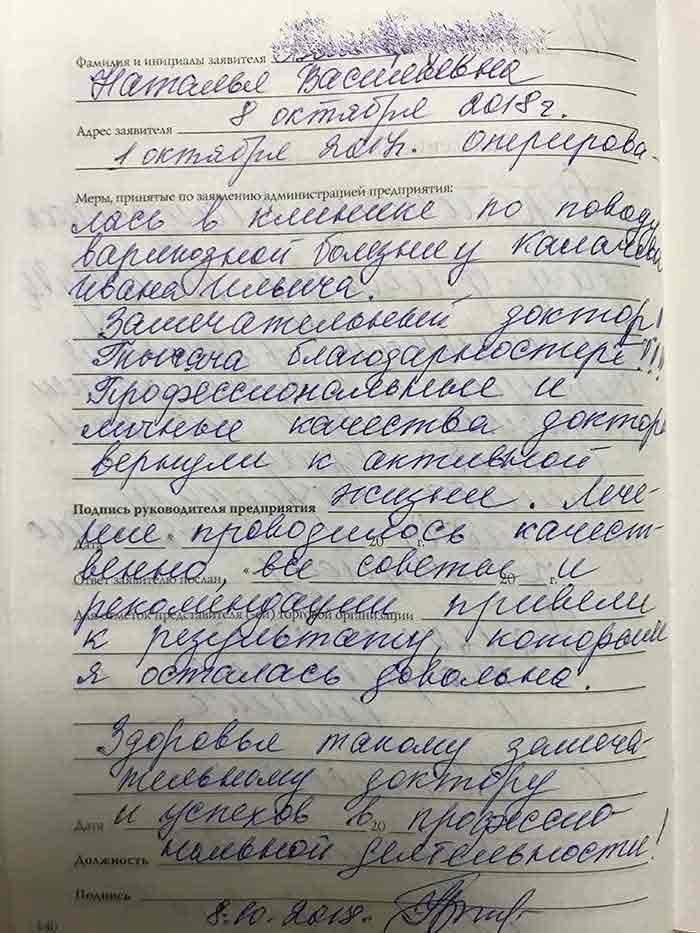 Фамилия и инициалы заявителя
Наталья Васильевна
8 октября 2018г.
Адрес заявителя
1 октября 2017г. Оперирова-
Меры, принятые по заявлению администрацией предприятия:
лась в клинике по поводу
варикозной болезни у Калачёва
Ивана Ильича.
Замечательный доктор!
Тысяча благодарностей!!!
Профессиональные и
личные качества доктора
вернули к активной
Подпись руководителя предприятия жизни. Лече-
ние проводилось качест-
Дата « 20 г.
венно все советы и
Ответ заявителю послан, « 20 г.
рекомендации привели
Для отметок представителя (ей) торговой организации
к результату, которым
я осталась довольна.
Здоровья такому замеча-
тельному доктору
Дата и успехов в 20 профессио-
Должность нальной деятельности!
Подпись
8.10.2018г.
140